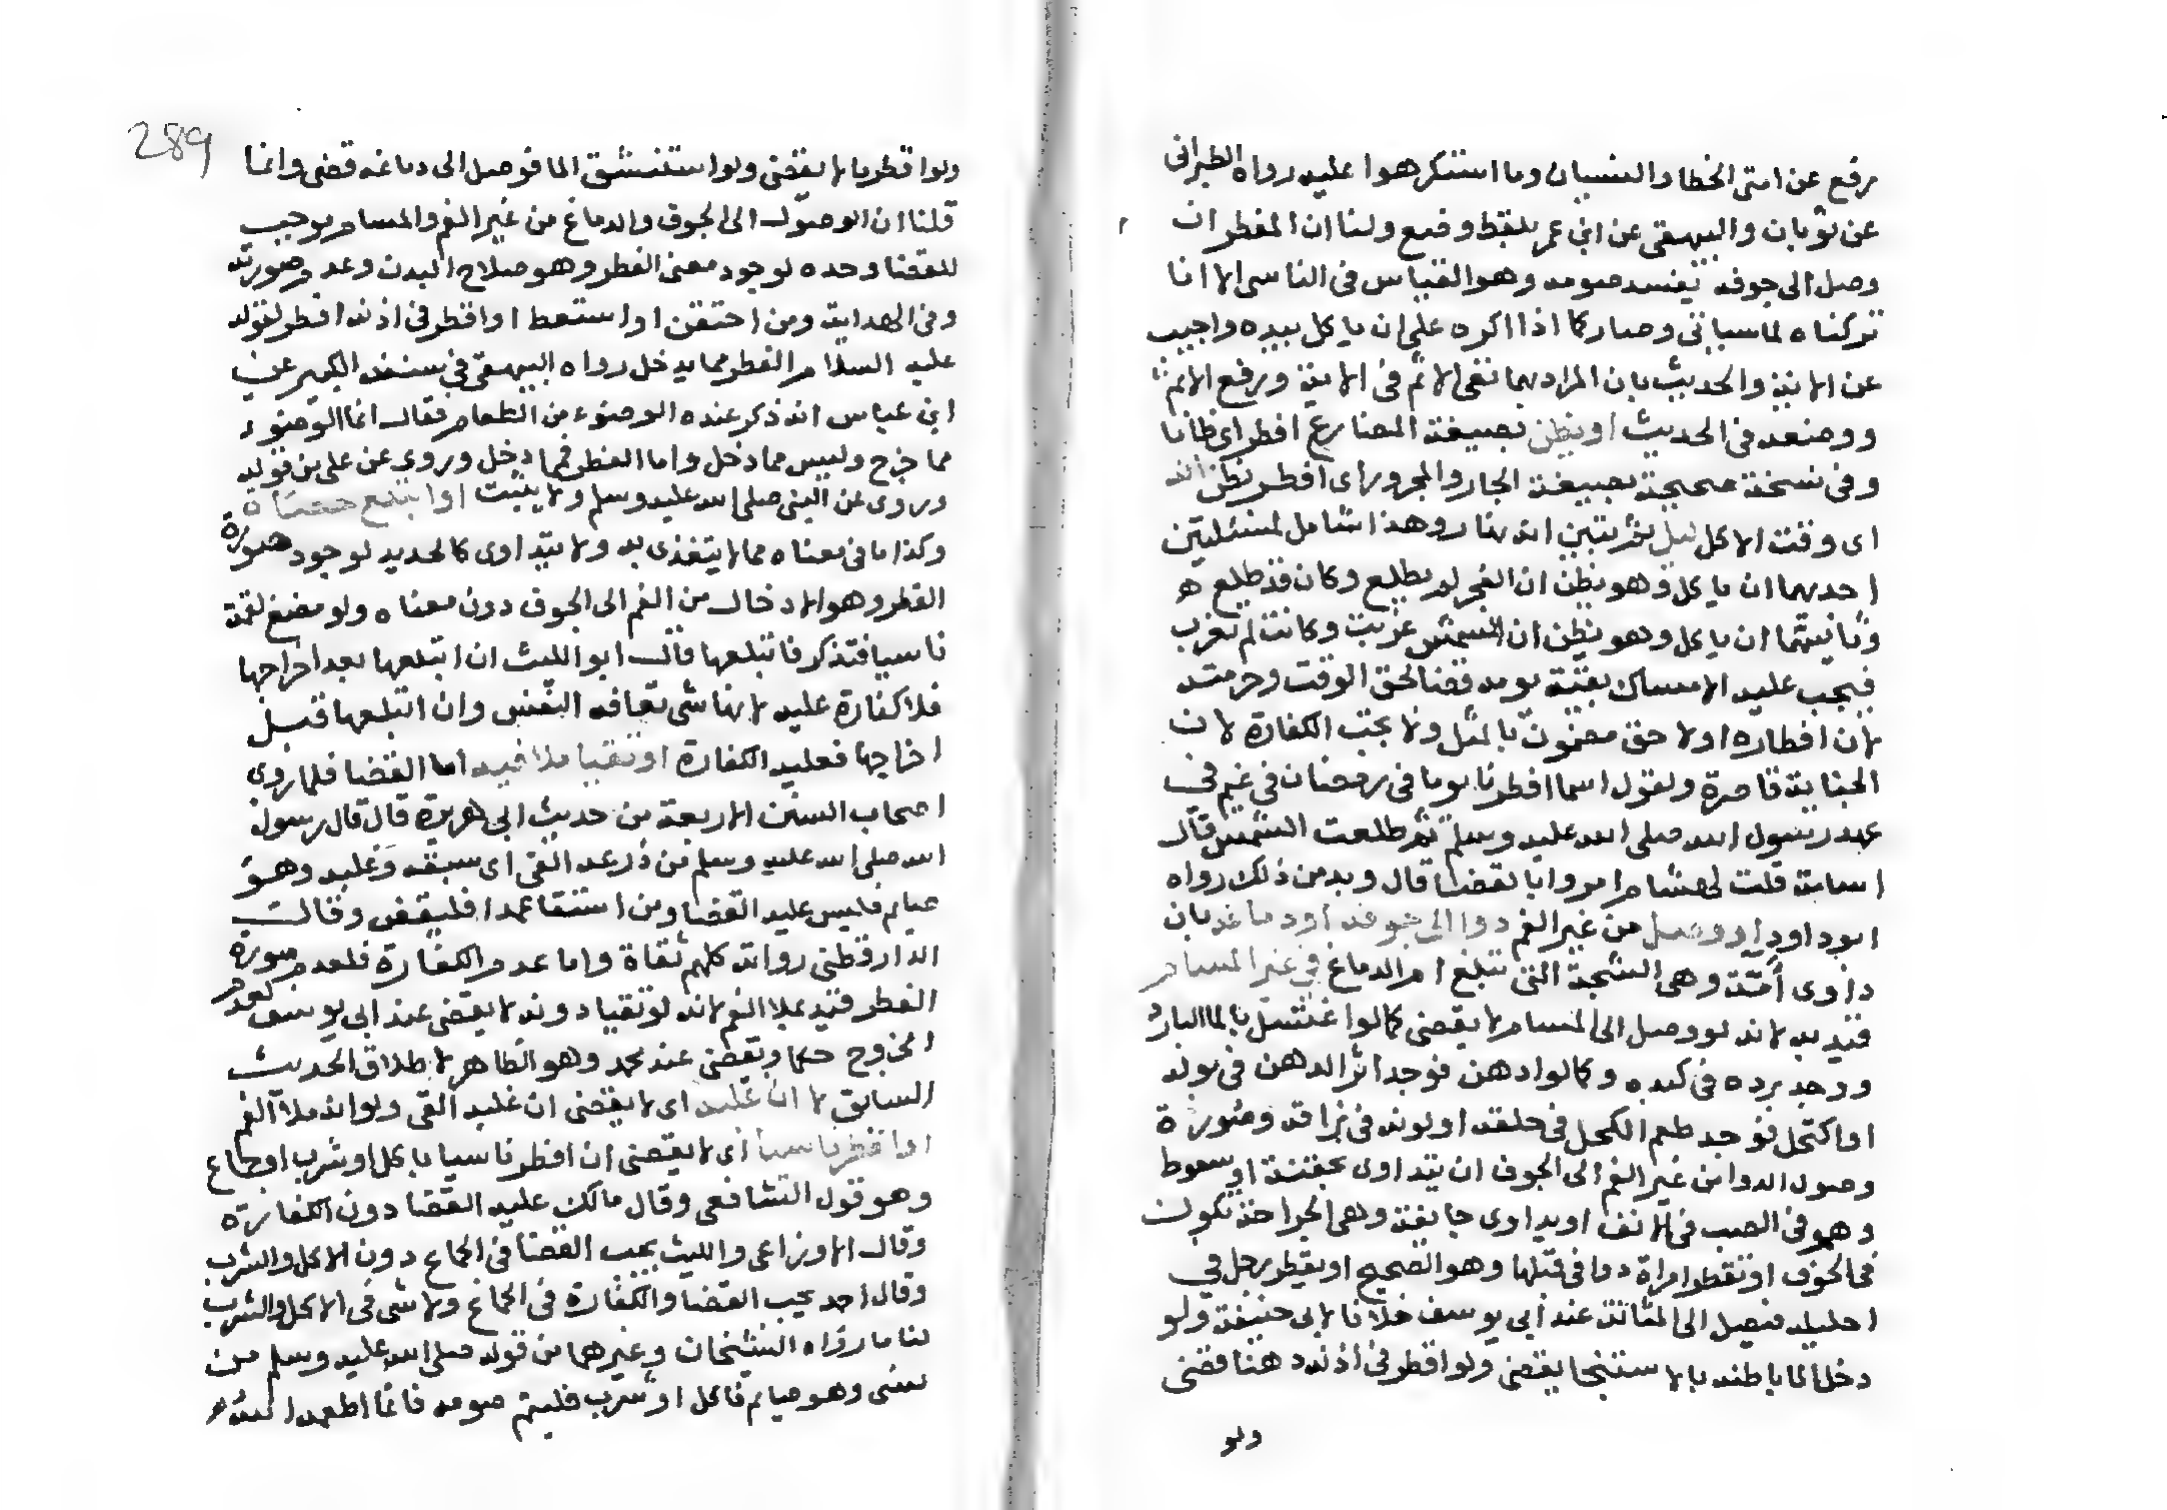 رفع عن امتى الخطا والنسيان وما استكرهوا عليه رواه الطبرانى
عن ثوبان والبيهقى عن ابن عمر بلفظ وضع ولنا ان المفطر ان
وصل الى جوفه يفسد صومه وهو القياس فى الناسى الا انا
تركناه لما سياتى وصار كما اذا اكره على ان ياكل بيده واجيب
عن الاية والحديث بان المراد بهما نفى الاثم فى الاية ورفع الاثم
ووضعه فى الحديث او يظن بصيغة المضارع افطر اى ظانا
وفى نسخة صحيحة بصيغة الجار والمجرور اى افطر بظن انه
اى وقت الاكل ليل ثم تبين انه نهار وهذا شامل لمسئلتين
احديهما ان ياكل وهو يظن ان الفجر لم يطلع وكان قد طلع
وثانيتهما ان ياكل وهو يظن ان الشمس غربت وكانت لم تغرب
فيجب عليه الامساك بقية يومه قضا لحق الوقت وحرمته
لان افطاره اولا حق مضمون بالمثل ولا يجب الكفارة لان
الجناية قاصرة ولقول اسما افطرنا يوما فى رمضان فى غيم فى
عهد رسول الله صلى الله عليه وسلم ثم طلعت الشمس قال
اسامة قلت لهشام امروا بالقضا قال وبد من ذلك رواه
ابو داود او وصل من غير الفم دوا الى جوفه او دماغه بان
داوى آمّة وهى الشجة التى تبلغ ام الدماغ فى غير المسام
قيد به لانه لو وصل الى المسام لا يقضى كما لو اغتسل بالما البارد
ووجد برده فى كبده وكما لو ادهن فوجد اثر الدهن فى بوله
او اكتحل فوجد طعم الكحل فى حلقه او لونه فى بزاقه وصورة
وصول الدوا من غير الفم الى الجوف ان يتداوى بحقنة او سعوط
وهو فى الصب فى الانف او يداوى جايفة وهى الجراحة تكون
فى الجوف او تقطر امراة دوا فى قبلها وهو الصحيح او يقطر رجل فى
احليله فيصل الى المثانة عند ابى يوسف خلافا لابى حنيفة ولو
دخل الما باطنه بالاستنجا يقضى ولو اقطر فى اذنه دهنا قضى
ولو
289
ولو اقطر ما لا يقضى ولو استنشق الما فوصل الى دماغه قضى وانما
قلنا ان الوصول الى الجوف والدماغ من غير الفم والمسام يوجب
للقضا وحده لوجود معنى الفطر وهو صلاح البدن وعدم صورته
وفى الهداية ومن احتقن او استعط او اقطر فى اذنه افطر لقوله
عليه السلام الفطر مما يدخل رواه البيهقى فى سننه الكبير عن
ابن عباس انه ذكر عنده الوضوء من الطعام فقال انما الوضوء
مما خرج وليس مما دخل واما الفطر فيما دخل وروى عن على من قوله
وروى عن النبى صلى الله عليه وسلم ولا يثبت او ابتلع حصاة
وكذا ما فى معناه مما لا يتغذى به ولا يتداوى كالحديد لوجود صورة
الفطر وهو الادخال من الفم الى الجوف دون معناه ولو مضغ لقمة
ناسيا فتذكر فابتلعها قال ابو الليث ان ابتلعها بعد اخراجها
فلا كفارة عليه لانها شى تعافه النفس وان ابتلعها قبل
اخراجها فعليه الكفارة او تقيا ملا فيه اما القضا فلما روى
اصحاب السنن الاربعة من حديث ابى هريرة قال قال رسول
الله صلى الله عليه وسلم من ذرعه القى اى سبقه وغلبه وهو
صايم فليس عليه القضا ومن استقا عمدا فليقض وقال
الدارقطنى رواته كلهم ثقاة واما عدم الكفارة فلعدم صورة
الفطر قيد بملا الفم لانه لو تقيا دونه لا يقضى عند ابى يوسف لعدم
الخروج حكما ويقضى عند محمد وهو الظاهر لاطلاق الحديث
السابق لا ان غلبه اى لا يقضى ان غلبه القى ولو انه ملا الفم
او افطر ناسيا اى لا يقضى ان افطر ناسيا باكل او شرب او جماع
وهو قول الشافعى وقال مالك عليه القضا دون الكفارة
وقال الاوزاعى والليث يجب القضا فى الجماع دون الاكل والشرب
وقال احمد يجب القضا والكفارة فى الجماع ولا شى فى الاكل والشرب
لنا ما رواه الشيخان وغيرهما من قوله صلى الله عليه وسلم من
نسى وهو صايم فاكل او شرب فليتم صومه فانما اطعمه الله